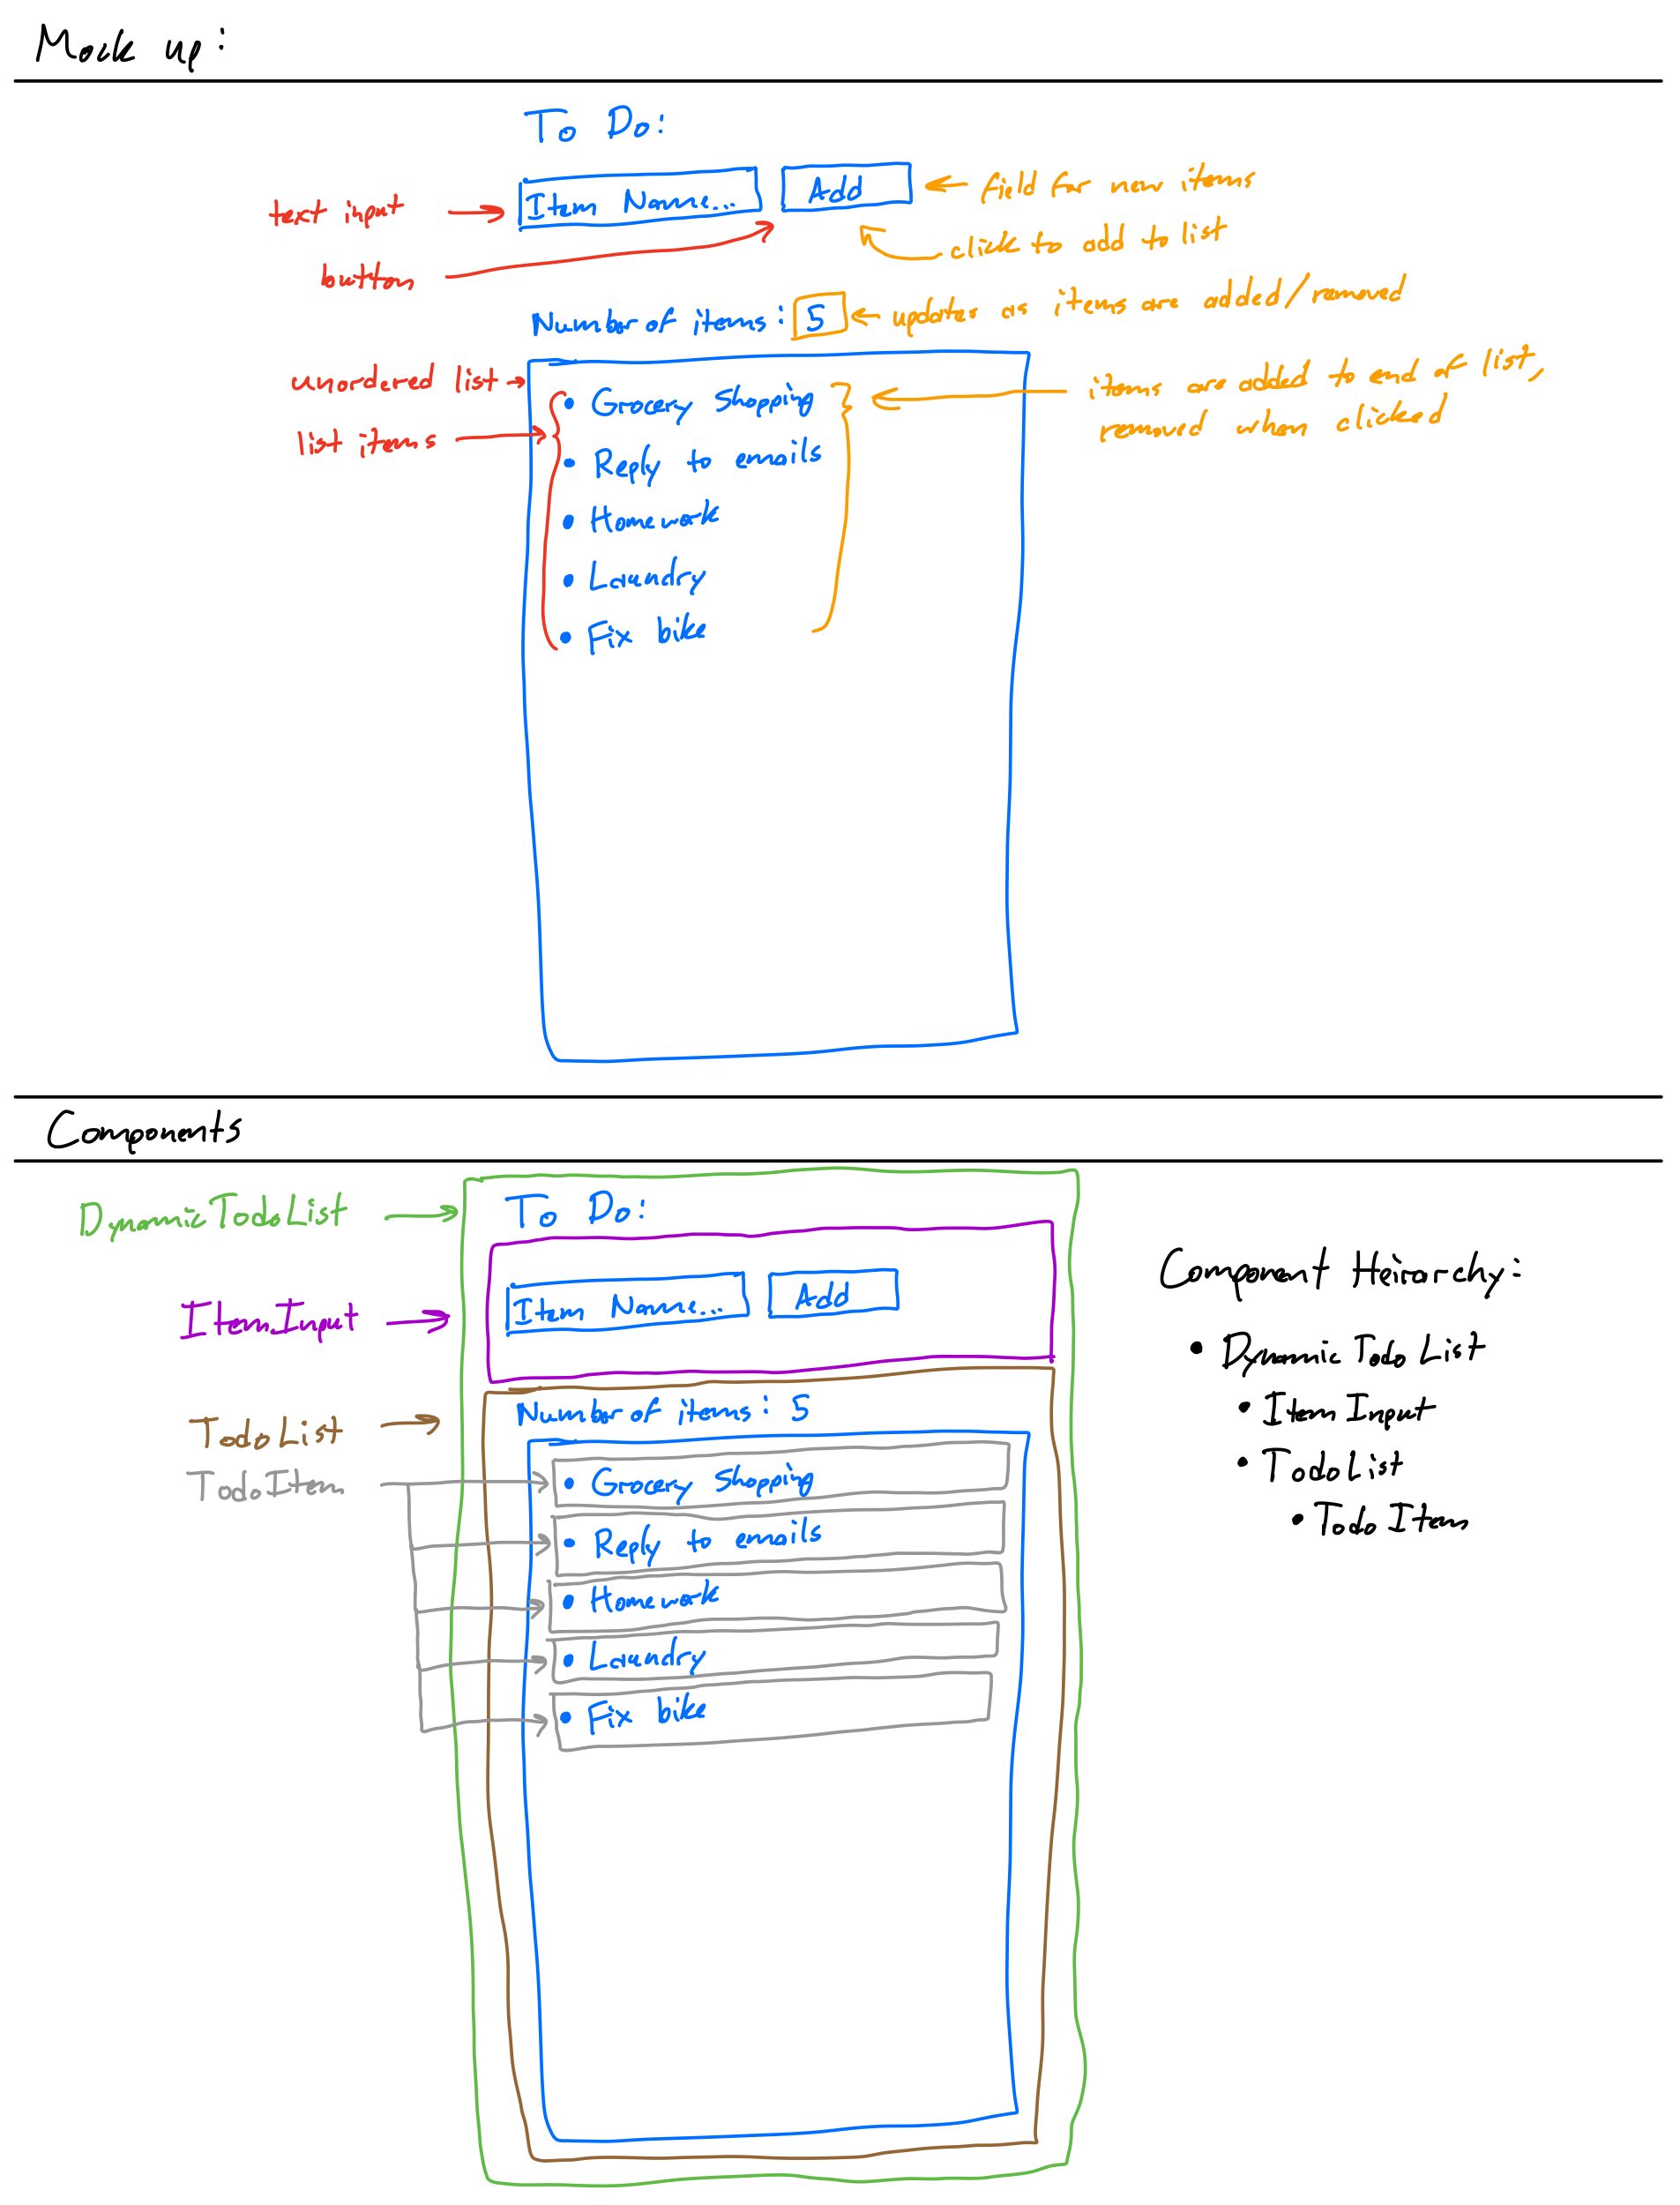 Mock up:
To Do:
text input
Item Name...
Add
field for new items
button
click to add to list
Number of items: 5
updates as items are added/removed
unordered list
list items
items are added to end of list,
removed when clicked
Grocery Shopping
Reply to emails
Homework
Laundry
Fix bike
Components
DynamicTodoList
To Do:
ItemInput
Item Name...
Add
TodoList
Number of items: 5
TodoItem
Grocery Shopping
Reply to emails
Homework
Laundry
Fix bike
Component Heirarchy:
DynamicTodoList
ItemInput
TodoList
TodoItem